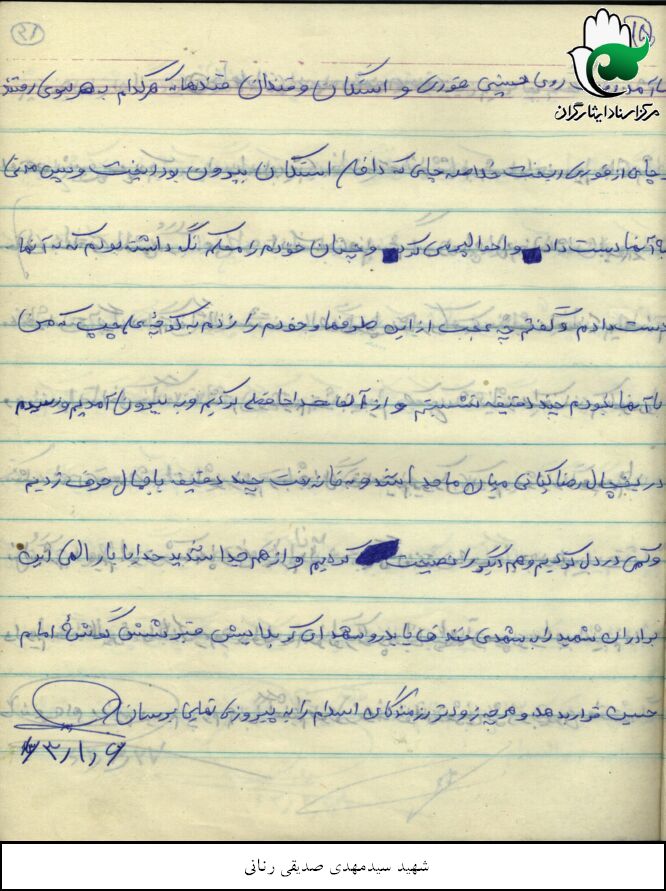 ۱۵
۲۱
مرکز اسناد ایثارگران
روی سینی قوری و استکان و قندان قندها که هر کدام به هر سوی رفتند
چای از قوری ریخت خلاصه چای که داخل استکان بیرون بود ریخت و
با آنها دست دادم و احوالپرسی کردم و چنان خودم را محکم نگه داشته بودم که به آنها
دست دادم و گفتم چه عجب از این طرفها و خودم را زدم به کوچه علی چپ که من
با آنها نبودم چند دقیقه نشستیم و از آنها خداحافظی کردیم و به بیرون آمدیم و رسیدیم
در یخچال رضا کیانی میان ما جدا شد و به خانه رفت چند دقیقه با جمال حرف زدیم
و کمی درد دل کردیم و همدیگر را نصیحت کردیم و از هم جدا شدیم خدایا بار الهی این
برادران شهید را به شهدای کربلا پیش امام
حسین قرار بده و هر چه زودتر رزمندگان اسلام را به پیروزی برسان
۶۳/۱/۶
شهید سیدمهدی صدیقی رنانی